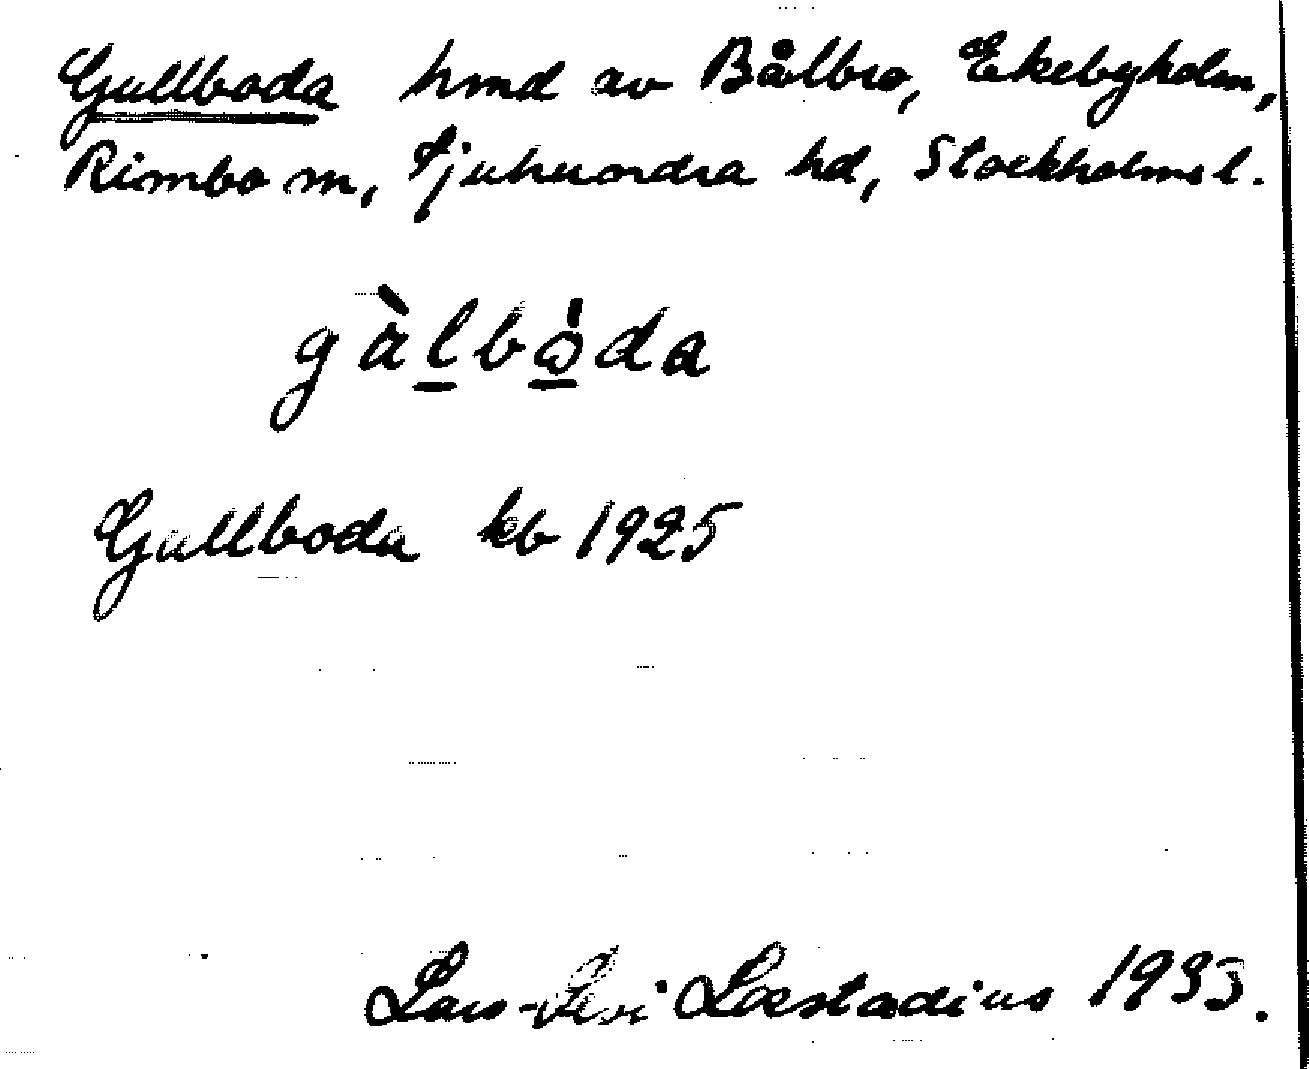 Gullboda hmd av Bålbro, Ekebyholm,
Rimbo sn, Sjuhundra hd, Stockholms l.
gàlbòda
Gullboda kb 1925
Lars-Levi Læstadius 1933.